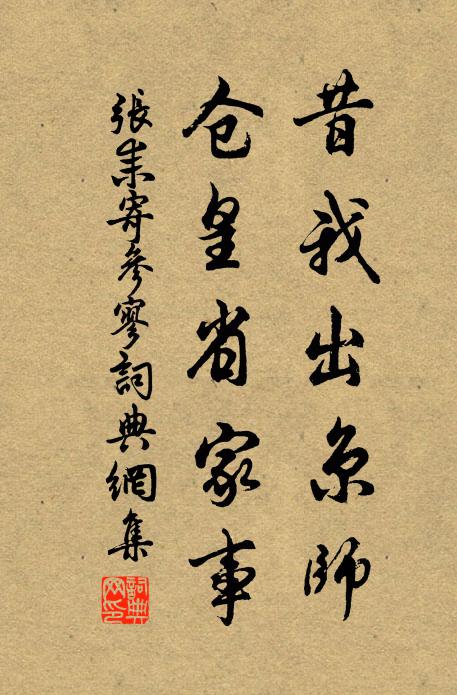 昔我出京師
仓皇省家事
張耒寄參寥詞典網集
詞典网印